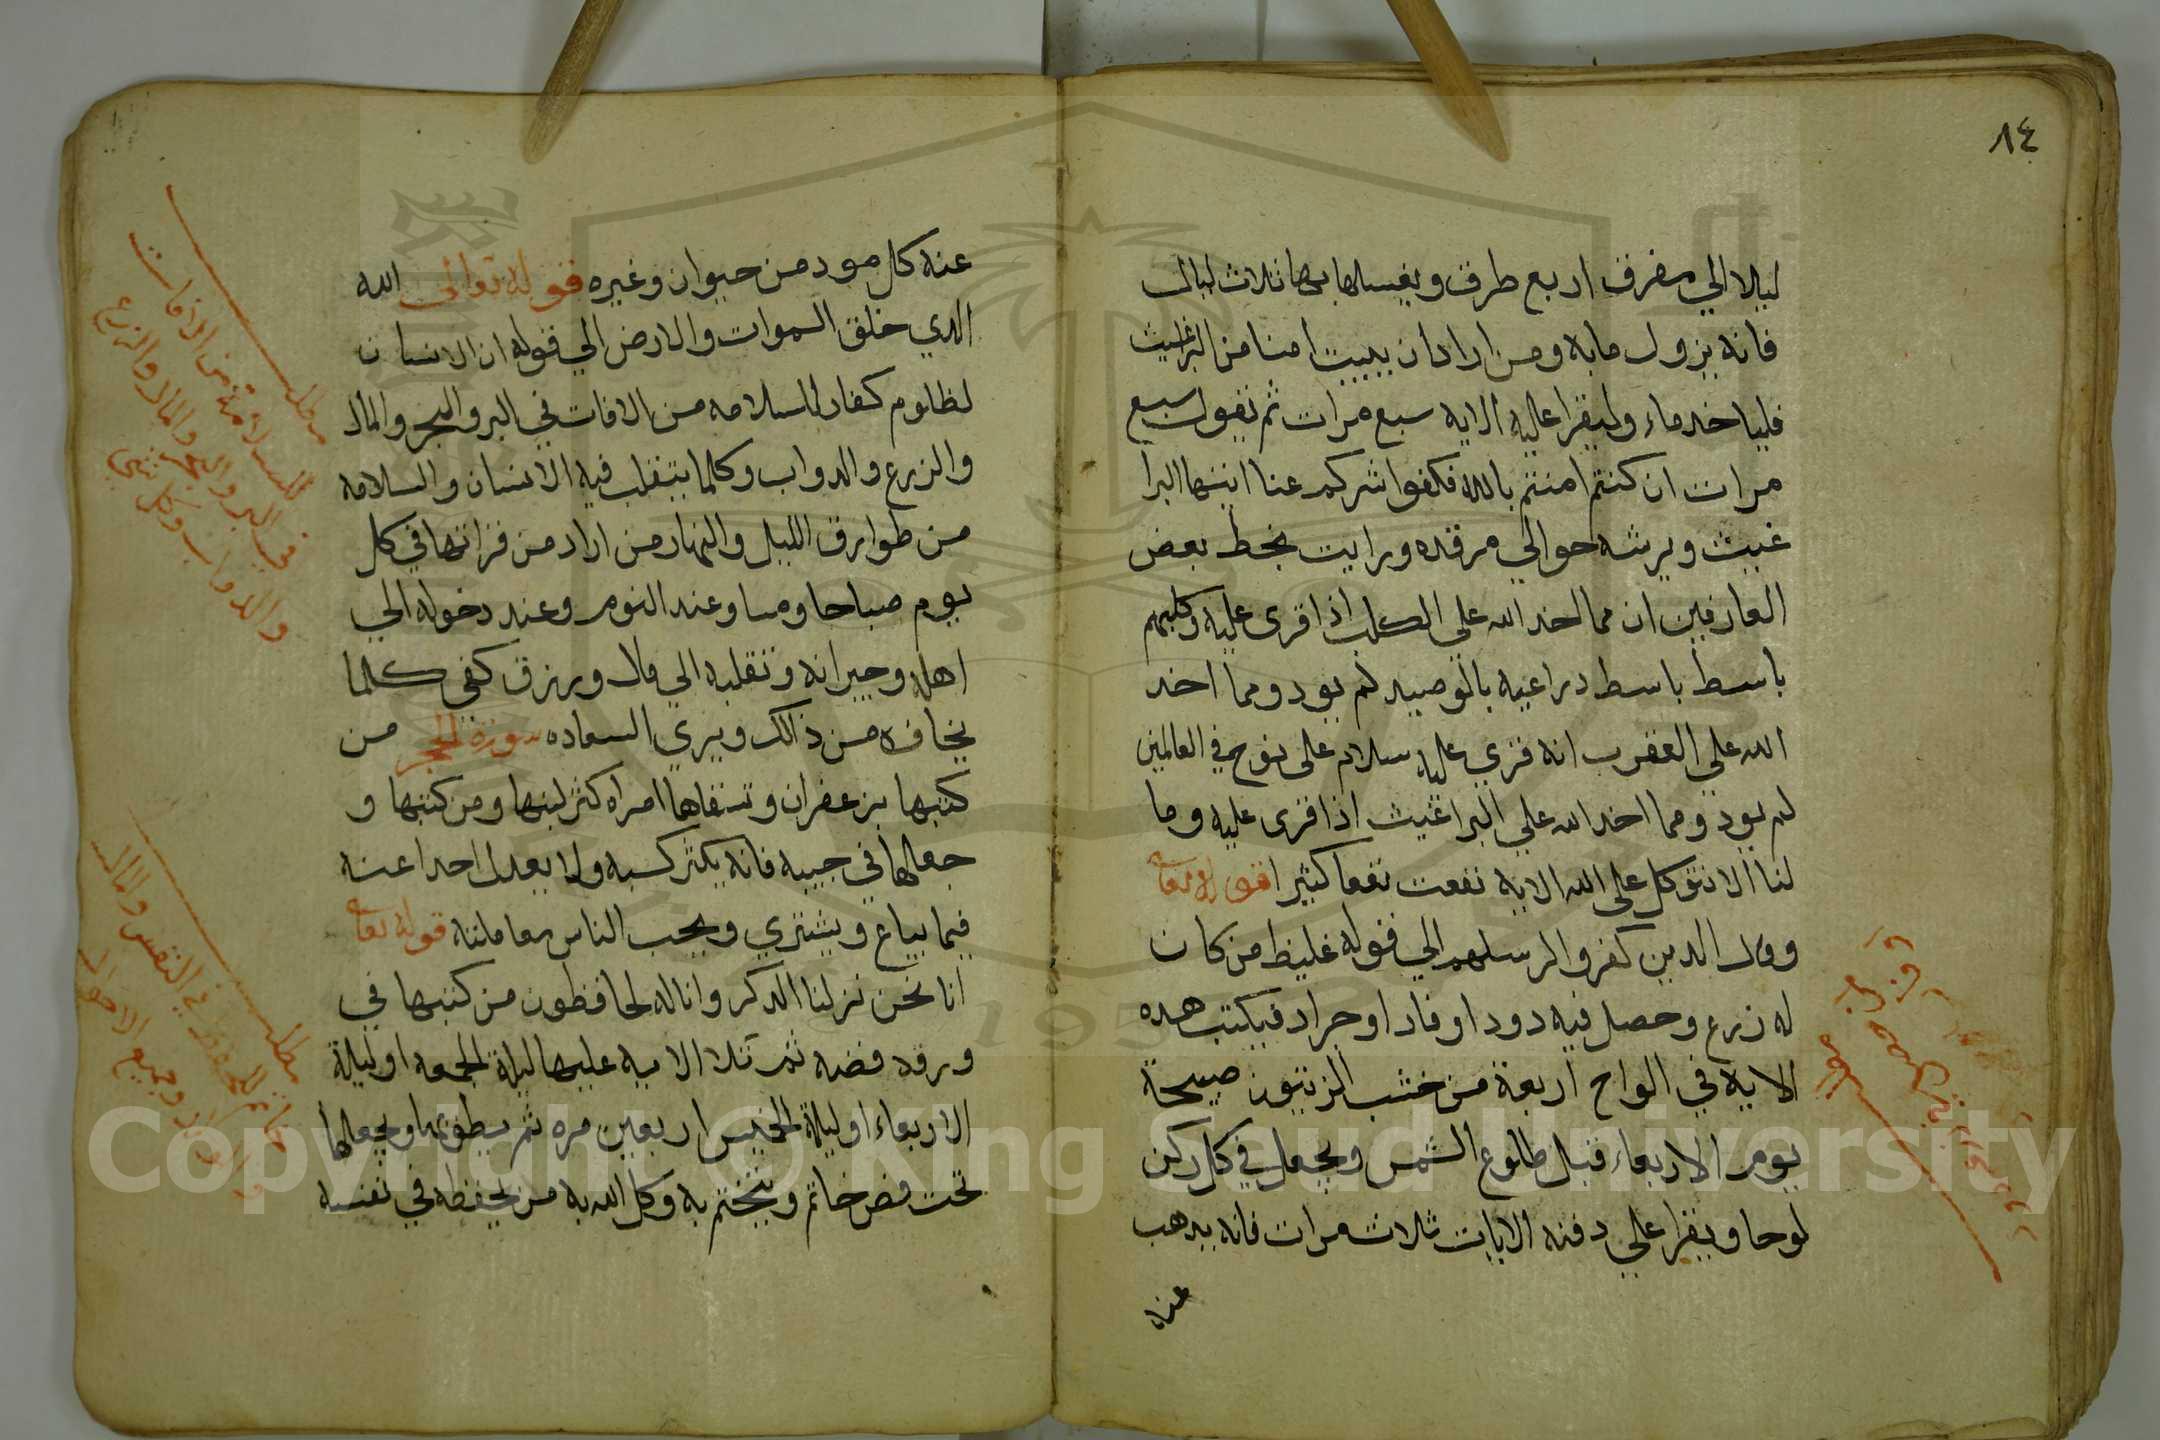 ٨٤
ليلا الي مفرق اربع طرق ويغسلها بها ثلاث ليال
فانه يزول مابه ومن اراد ان يبيت امنا من البراغيث
فلياخد ماء وليقرا عليه الايه سبع مرات ثم يقول سبع
مرات ان كنتم امنتم بالله فكفوا شركم عنا ايتها البرا
غيث ويرشه حوالي مرقده ورايت بخط بعض
العارفين ان مما اخد الله علي الكلب اذا قرى عليه وكلبهم
باسط باسط دراعيه بالوصيد لم يود ومما اخد
الله علي العقرب انه قري عليه سلام على نوح في العالمين
لم يود ومما اخد الله علي البراغيث اذا قرى عليه وما
لنا الا نتوكل علي الله الايه نفعت نفعا كثيرا قوله تعا
وقال الدين كفروا لرسلهم الي قوله غليظ من كان
له زرع وحصل فيه دود او فار او جراد فيكتب هده
الايه في الواح اربعة من خشب الزيتون صبيحة
يوم الاربعاء قبل طلوع الشمس ويجعل في كل ركن
لوحا ويقرا علي دفنه الايات ثلاث مرات فانه يدهب
عنه
عنه كل مود من حيوان وغيره قوله تعالى الله
الدي خلق السموات والارض الي قوله ان الانسان
لظلوم كفار للسلامه من الافات في البر والبحر والمال
والزرع والدواب وكلما يتقلب فيه الانسان والسلامه
من طوارق الليل والنهار من اراد من قراتها في كل
يوم صباحا ومسا وعند النوم وعند دخوله الي
اهله وجيرانه وتقلبه الي مال ورزق كفى كلما
يخافه من ذالك ويري السعاده سورة الحجر من
كتبها بزعفران وتسقاها امراه كثر لبنها ومن كتبها و
جعلها في جيبه فانه يكثر كسبه ولا يعدل احدا عنه
فيما يباع ويشتري ويحب الناس معاملته قوله تعا
انا نحن نزلنا الدكر وانا له لحافظون من كتبها في
ورقه فضه ثم تلا الايه عليها ليلة الجمعه او ليلة
الاربعاء او ليلة الخميس اربعين مره ثم يطويها ويجعلها
تحت فص خاتم ويتختم به وكل الله به من يحفظه في نفسه
مطلب
للسلامة من الافات
في البر والبحر والمال والزرع
والدواب وكل شي
مطلب
خاتم للحفظ في النفس والمال